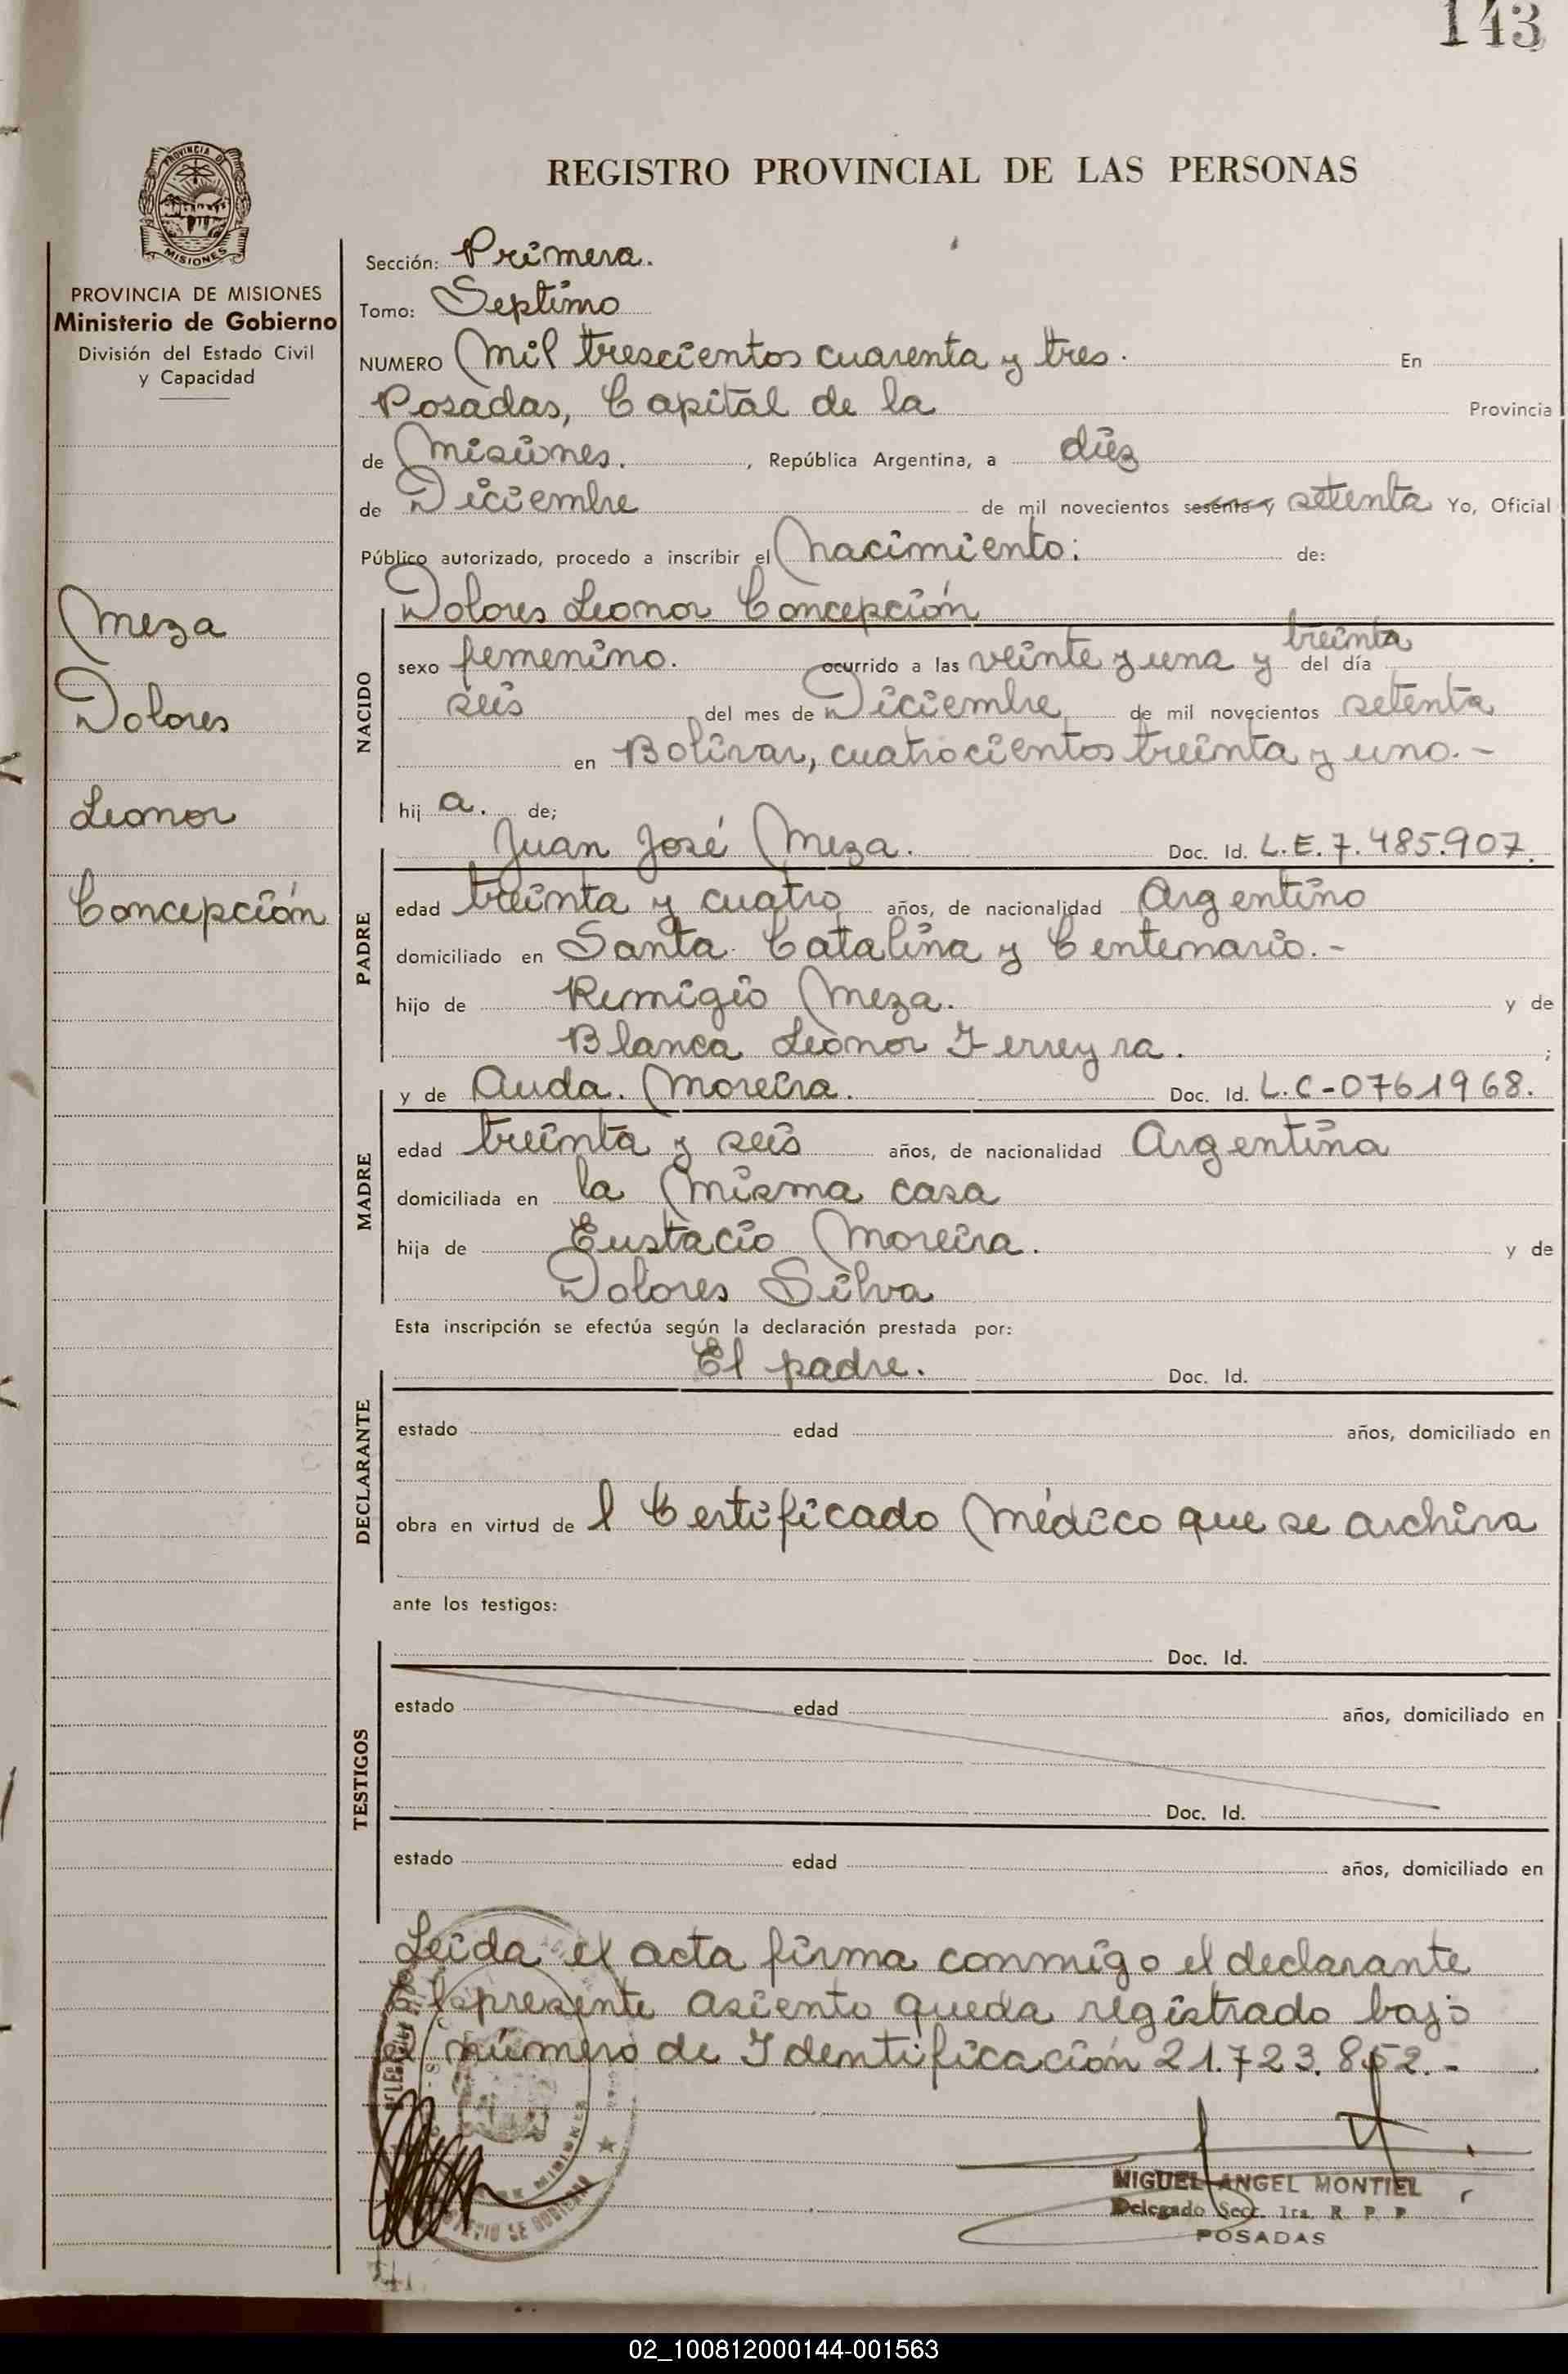 143
PROVINCIA DE
MISIONES
REGISTRO PROVINCIAL DE LAS PERSONAS
PROVINCIA DE MISIONES
Ministerio de Gobierno
División del Estado Civil
y Capacidad
Meza
Dolores
Leonor
Concepción
Sección: Primera.
Tomo: Septimo
NUMERO Mil trescientos cuarenta y tres. En
Posadas, Capital de la Provincia
de Misiones. , República Argentina, a diez
de Diciembre de mil novecientos sesenta y setenta Yo, Oficial
Público autorizado, procedo a inscribir el Nacimiento: de:
Dolores Leonor Concepción
NACIDO
sexo femenino. ocurrido a las veinte y una y treinta del día
seis del mes de Diciembre de mil novecientos setenta
en Bolívar, cuatrocientos treinta y uno.-
hij a. de;
Juan José Meza. Doc. Id. L.E. 7.485.907.
PADRE
edad treinta y cuatro años, de nacionalidad Argentino
domiciliado en Santa Catalina y Centenario.-
hijo de Remigio Meza. y de
Blanca Leonor Ferreyra. ;
y de Auda. Moreira. Doc. Id. L.C-0761968.
MADRE
edad treinta y seis años, de nacionalidad Argentina
domiciliada en la misma casa
hija de Eustacio Moreira. y de
Dolores Silva
Esta inscripción se efectúa según la declaración prestada por:
El padre. Doc. Id.
DECLARANTE
estado edad años, domiciliado en
obra en virtud de l Certificado Médico que se archiva
ante los testigos:
Doc. Id.
TESTIGOS
estado edad años, domiciliado en
Doc. Id.
estado edad años, domiciliado en
Leída el acta firma conmigo el declarante
El presente asiento queda registrado bajo
el número de Identificación 21.723.852.-
MIGUEL ANGEL MONTIEL
Delegado Secc. 1ra. R. P. P
POSADAS
02_100812000144-001563